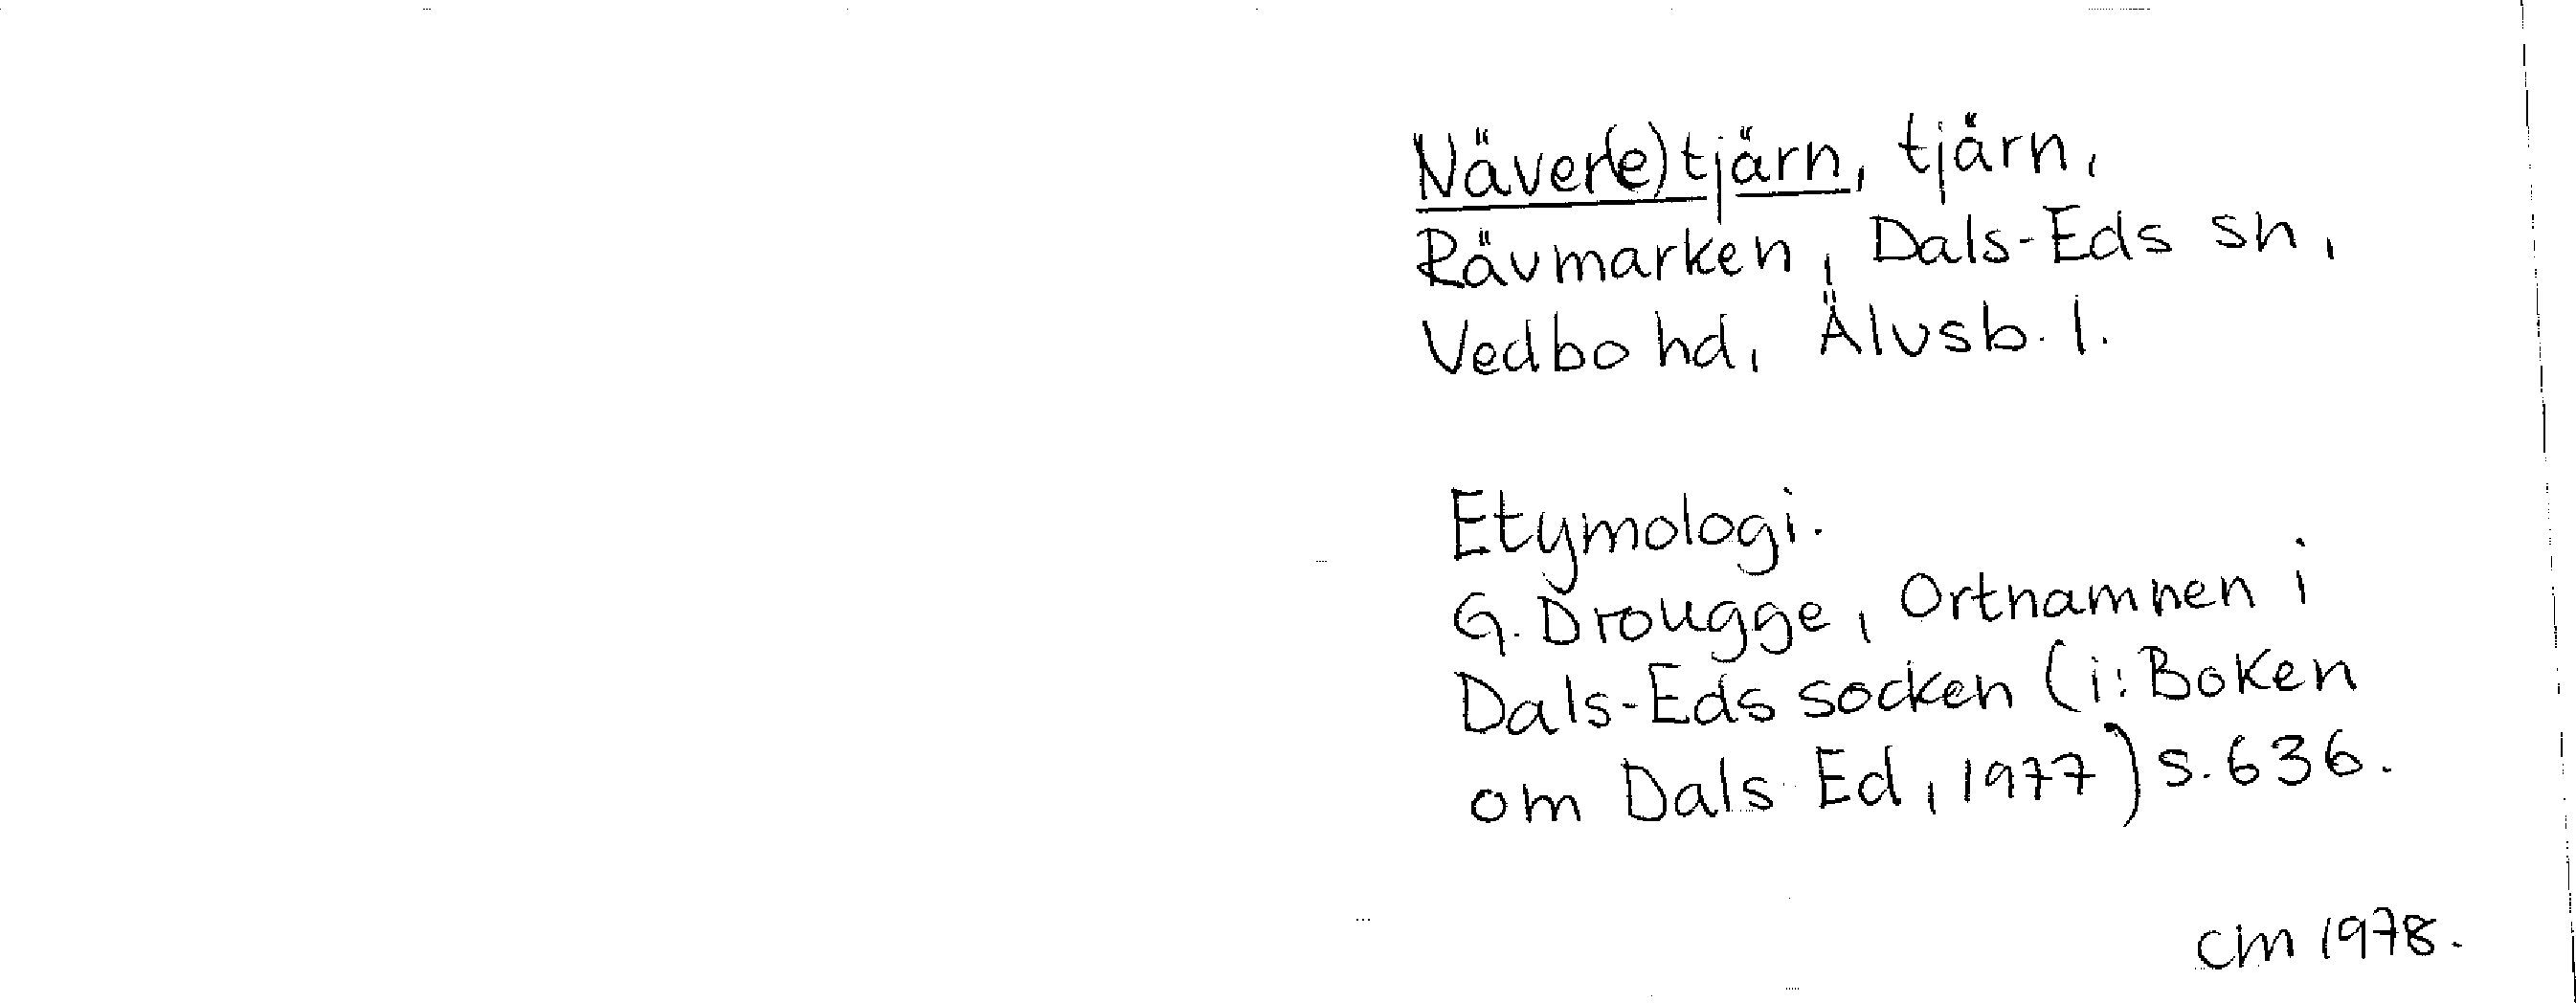 Näver(e)tjärn, tjärn,
Rävmarken, Dals-Eds sn,
Vedbo hd, Älvsb. l.
Etymologi.
G. Drougge, Ortnamnen i
Dals-Eds socken (i: Boken
om Dals Ed, 1977) s. 636.
CM 1978.